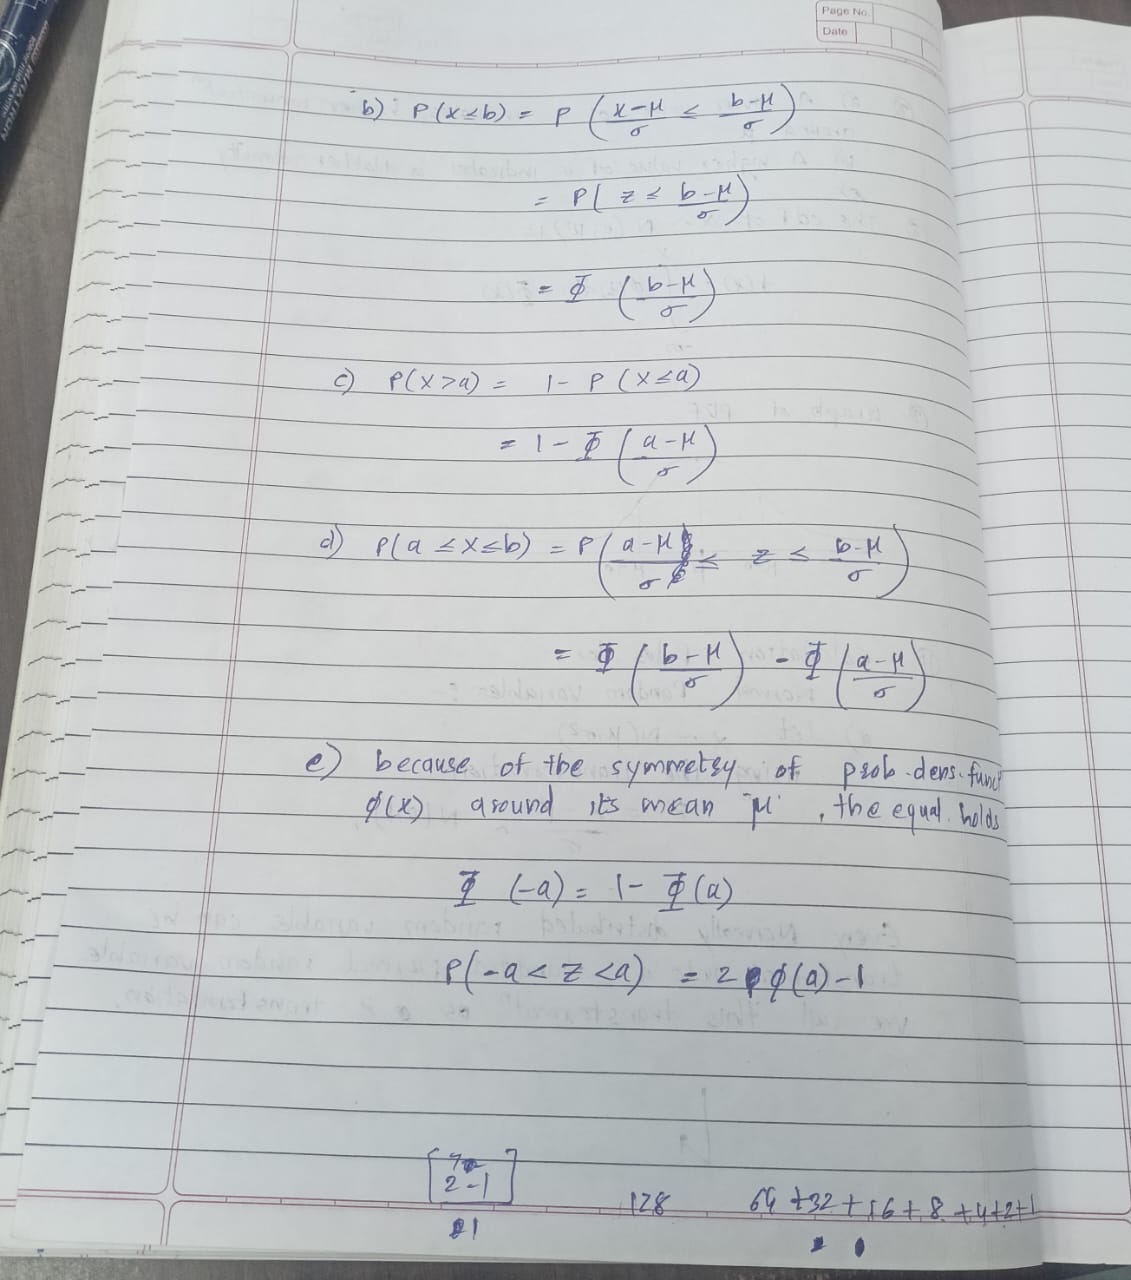 Page No.
Date
b) P(x≤b) = P ( (x-μ)/σ ≤ (b-μ)/σ )
= P( z ≤ (b-μ)/σ )
= Φ ( (b-μ)/σ )
c) P(x>a) = 1- P (x≤a)
= 1- Φ ( (a-μ)/σ )
d) P(a ≤x≤b) = P( (a-μ)/σ ≤ z ≤ (b-μ)/σ )
= Φ ( (b-μ)/σ ) - Φ ( (a-μ)/σ )
e) because of the symmetry of prob.dens.funct
ϕ(x) around its mean "μ", the equal. holds
Φ (-a) = 1- Φ(a)
P(-a<z<a) = 2 ϕ(a)-1
2-1
128 64 +32+16+8+4+2+1